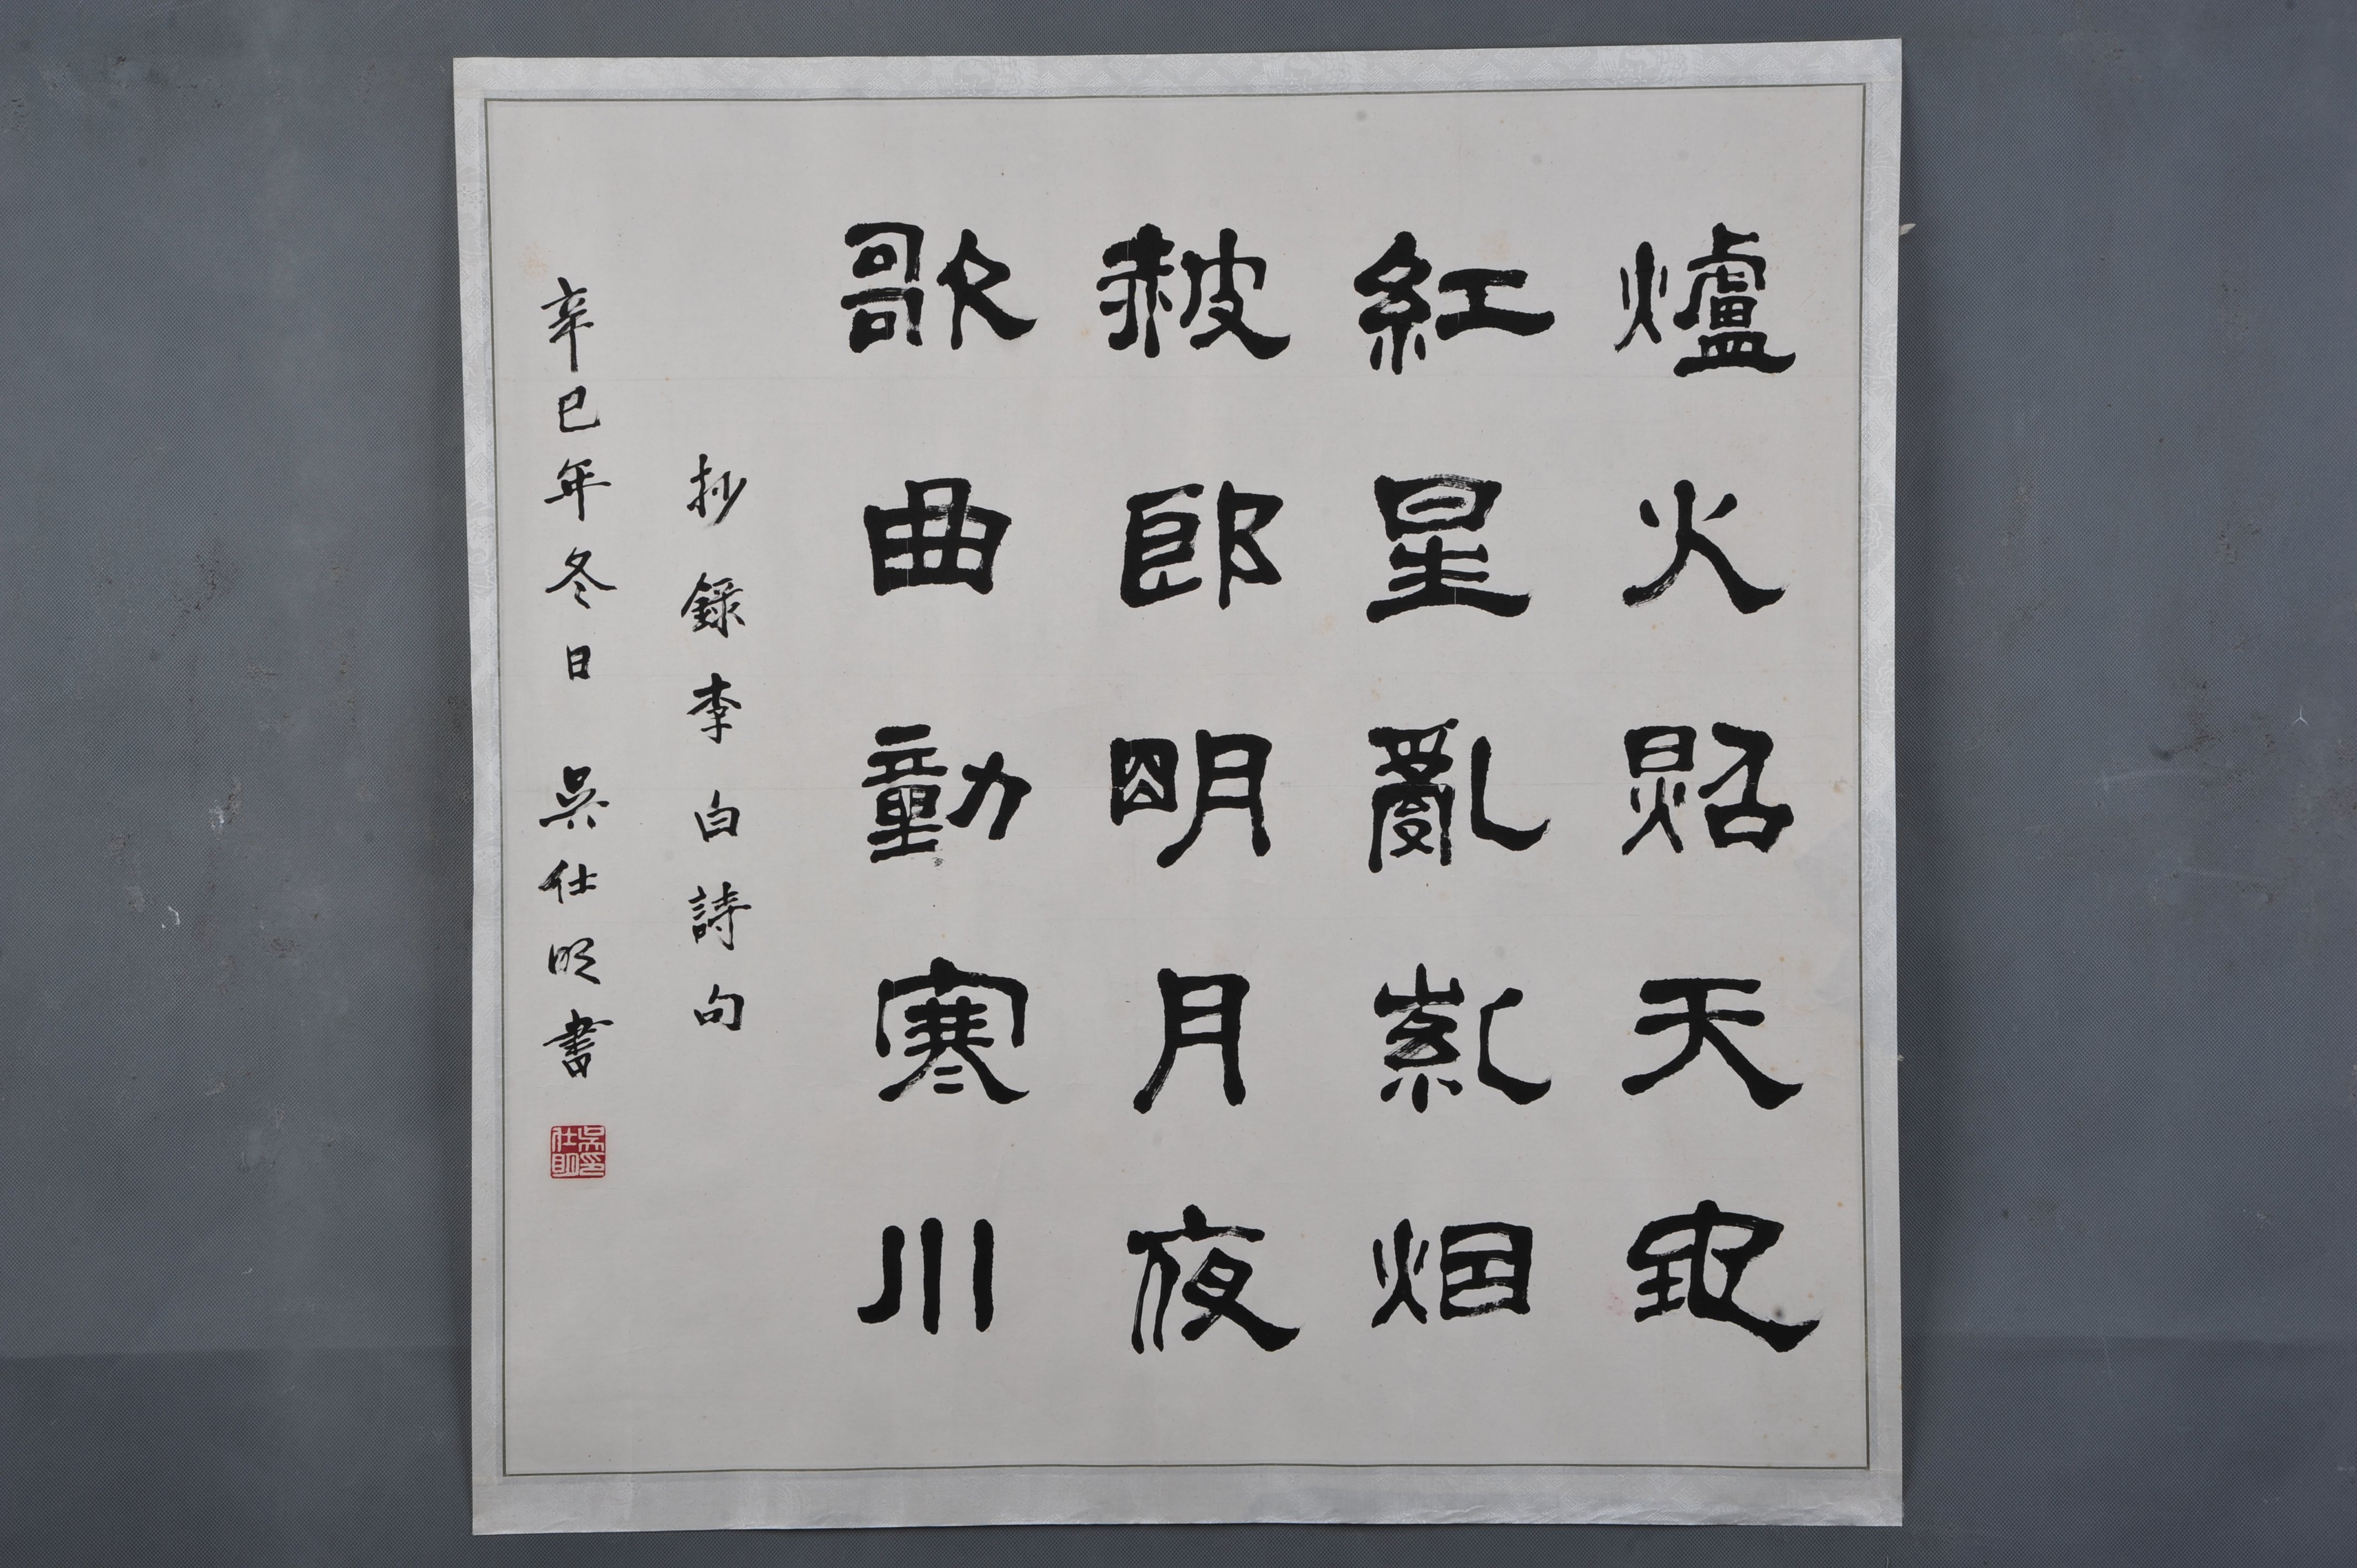 爐火照天地
紅星亂紫烟
赧郎明月夜
歌曲動寒川
抄錄李白詩句
辛巳年冬日 吳仕明書
吳印仕明